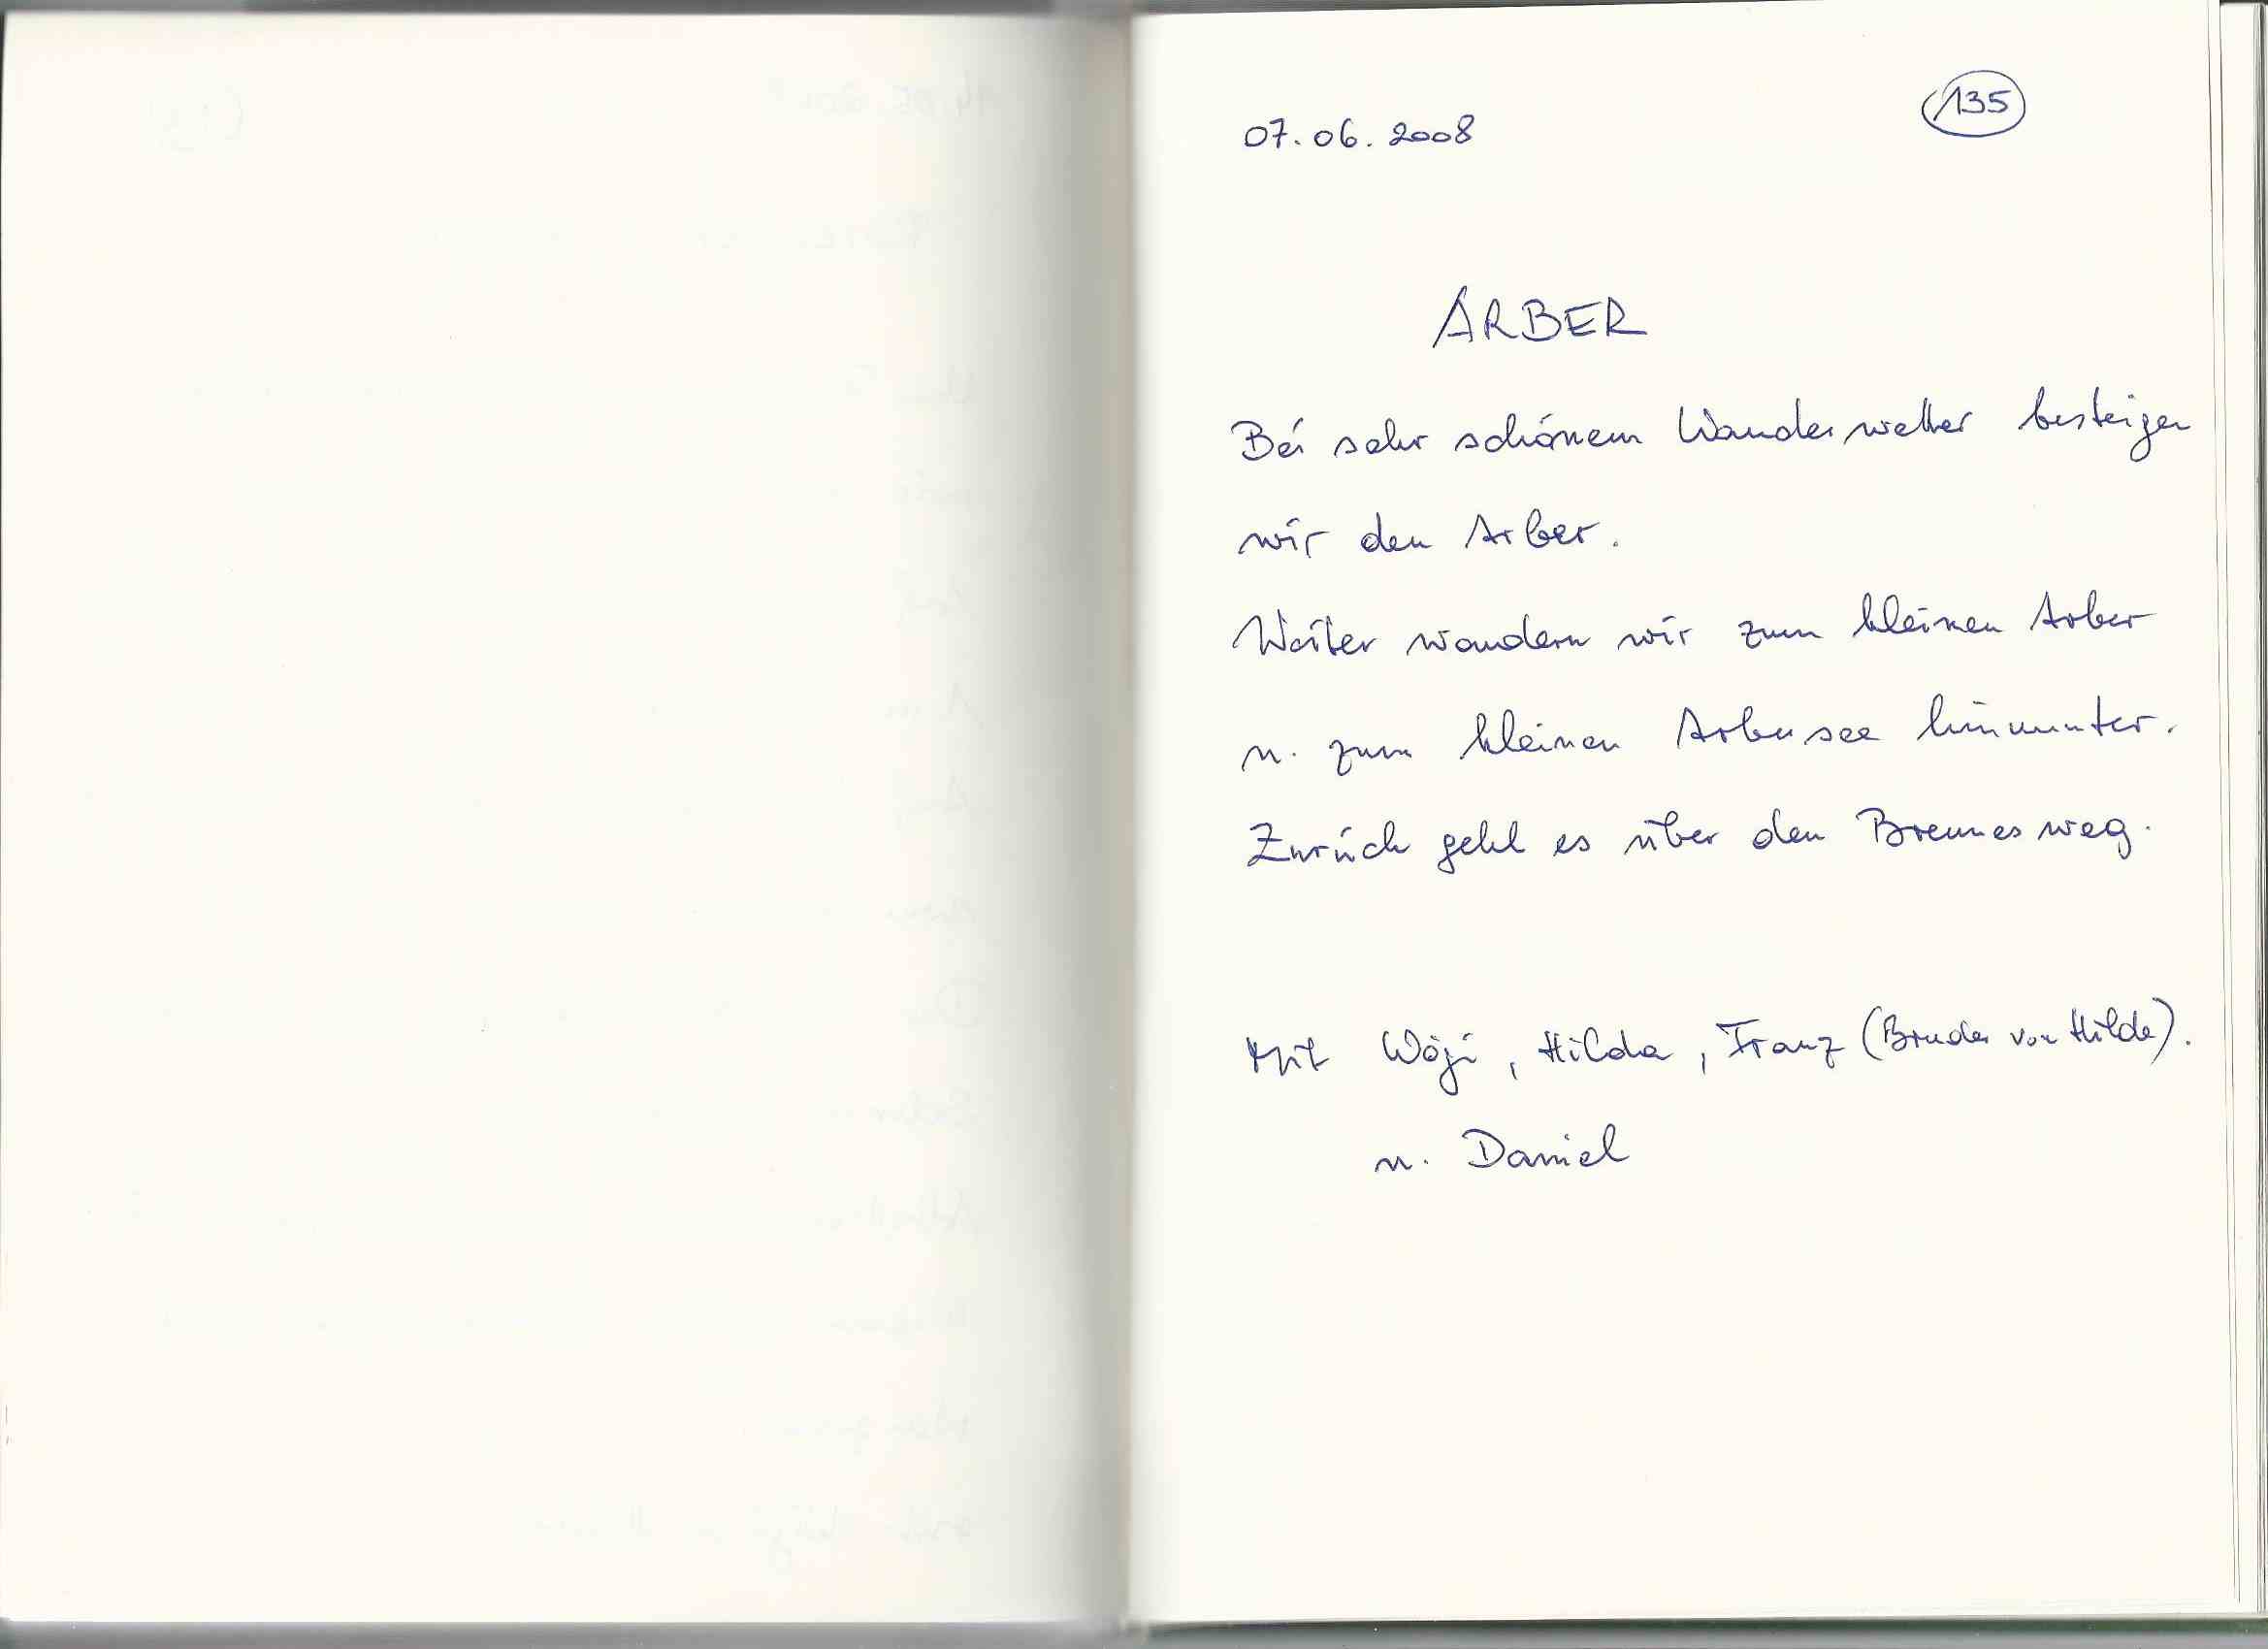 07.06.2008
135
ARBER
Bei sehr schönem Wanderwetter besteigen
wir den Arber.
Weiter wandern wir zum kleinen Arber
u. zum kleinen Arbersee hinunter.
Zurück geht es über den Brennesweg.
Mit Wögi, Hilda, Franz (Bruder von Hilde).
u. Daniel